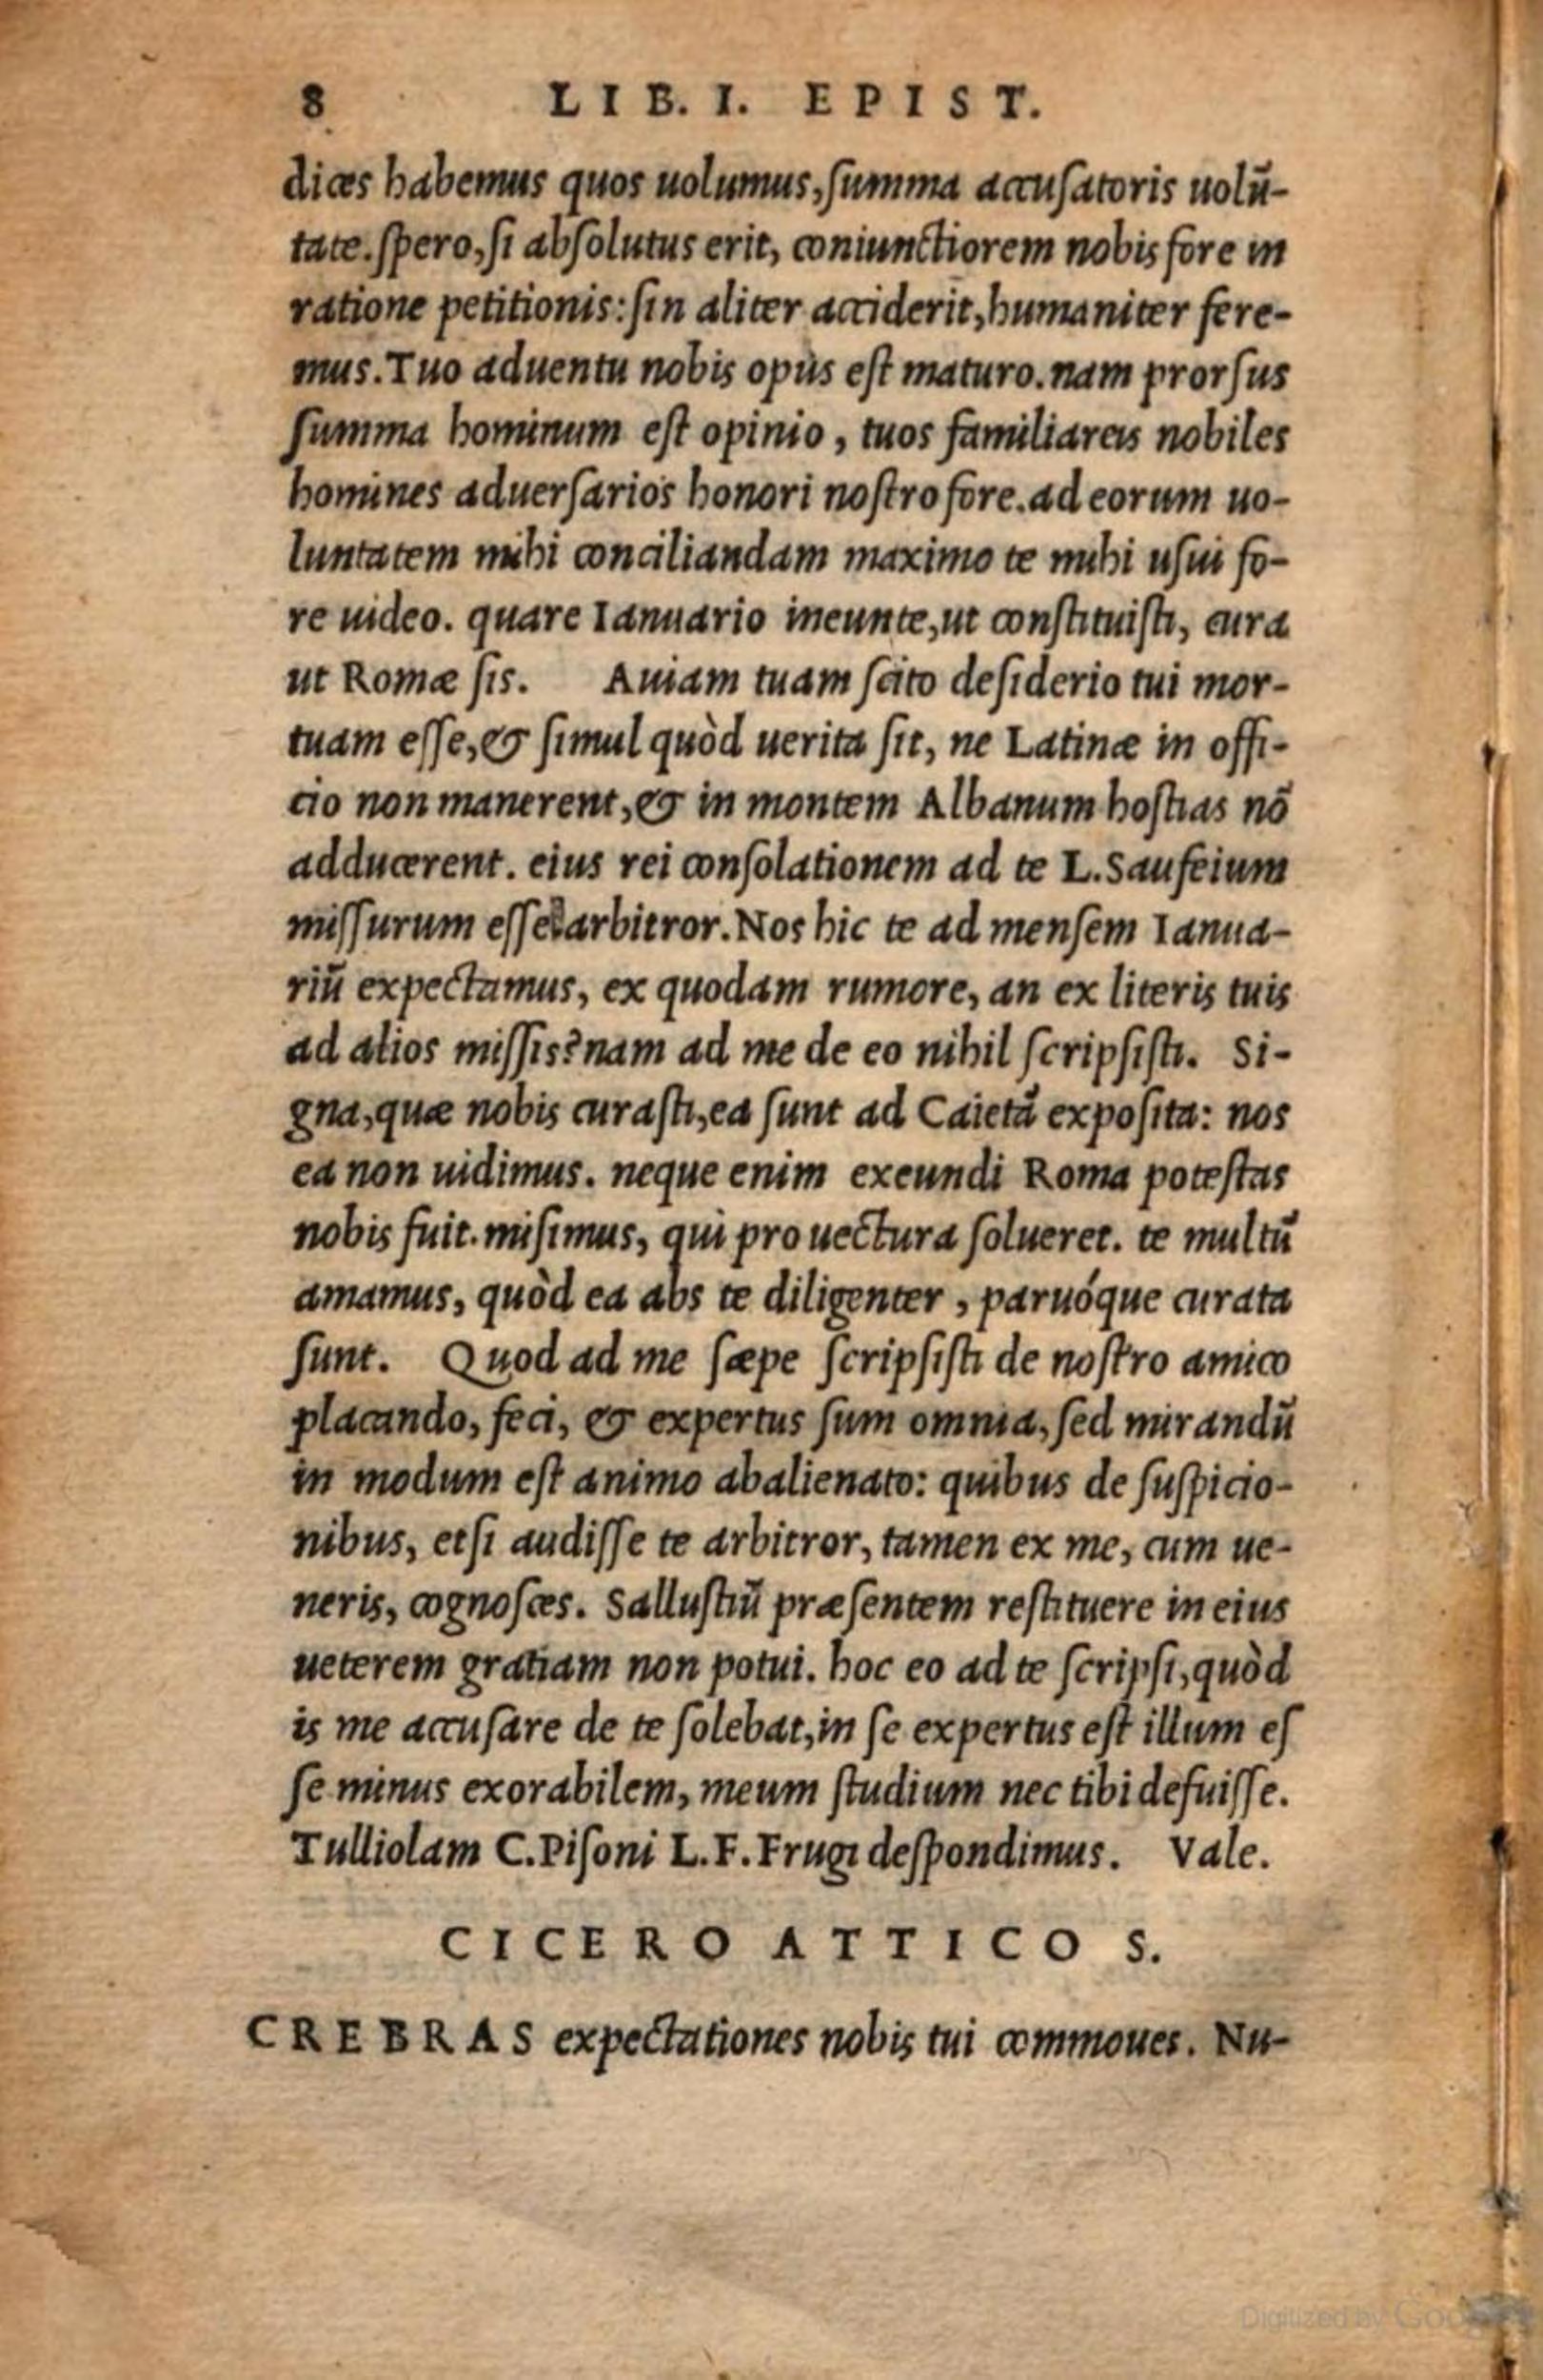 8 LIB. I. EPIST.
dices habemus quos uolumus, ſumma accuſatoris uolũ-
tate. ſpero, ſi abſolutus erit, coniunctiorem nobis fore in
ratione petitionis: ſin aliter acciderit, humaniter fere-
mus. Tuo aduentu nobis opus eſt maturo. nam prorſus
ſumma hominum eſt opinio, tuos familiareis nobiles
homines aduerſarios honori noſtro fore. ad eorum uo-
luntatem mihi conciliandam maximo te mihi uſui fo-
re uideo. quare Ianuario ineunte, ut conſtituiſti, cura
ut Romæ ſis. Auiam tuam ſcito deſiderio tui mor-
tuam eſſe, & ſimul quòd uerita ſit, ne Latinæ in offi-
cio non manerent, & in montem Albanum hoſtias nõ
adducerent. eius rei conſolationem ad te L. Saufeium
miſſurum eſſe arbitror. Nos hic te ad menſem Ianua-
riũ expectamus, ex quodam rumore, an ex literis tuis
ad alios miſſis? nam ad me de eo nihil ſcripſiſti. Si-
gna, quæ nobis curaſti, ea ſunt ad Caietã expoſita: nos
ea non uidimus. neque enim exeundi Roma poteſtas
nobis fuit. miſimus, qui pro uectura ſolueret. te multũ
amamus, quòd ea abs te diligenter, paruóque curata
ſunt. Quod ad me ſæpe ſcripſiſti de noſtro amico
placando, feci, & expertus ſum omnia, ſed mirandũ
in modum eſt animo abalienato: quibus de ſuſpicio-
nibus, etſi audiſſe te arbitror, tamen ex me, cum ue-
neris, cognoſces. Salluſtiũ præſentem reſtituere in eius
ueterem gratiam non potui. hoc eo ad te ſcripſi, quòd
is me accuſare de te ſolebat, in ſe expertus eſt illum eſ
ſe minus exorabilem, meum ſtudium nec tibi defuiſſe.
Tulliolam C. Piſoni L. F. Frugi deſpondimus. Vale.
CICERO ATTICO S.
CREBRAS expectationes nobis tui commoues. Nu-
Digitized by Google